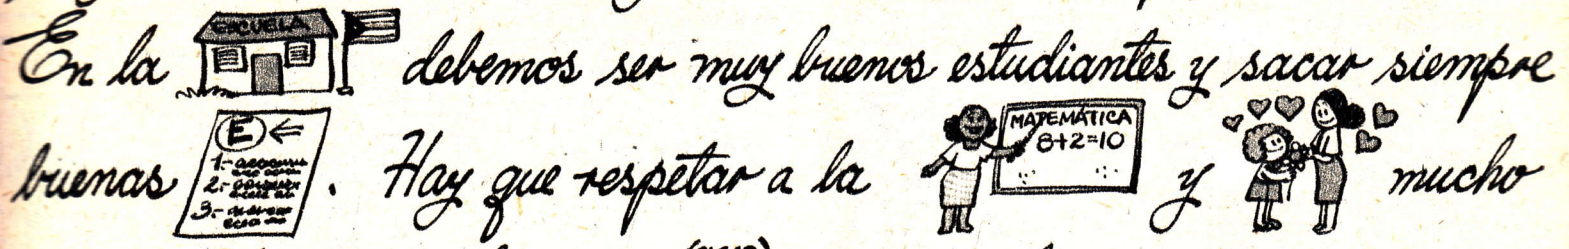 En la ESCUELA debemos ser muy buenos estudiantes y sacar siempre
buenas E 1- 2- 3- . Hay que respetar a la MATEMÁTICA 8+2=10 y mucho